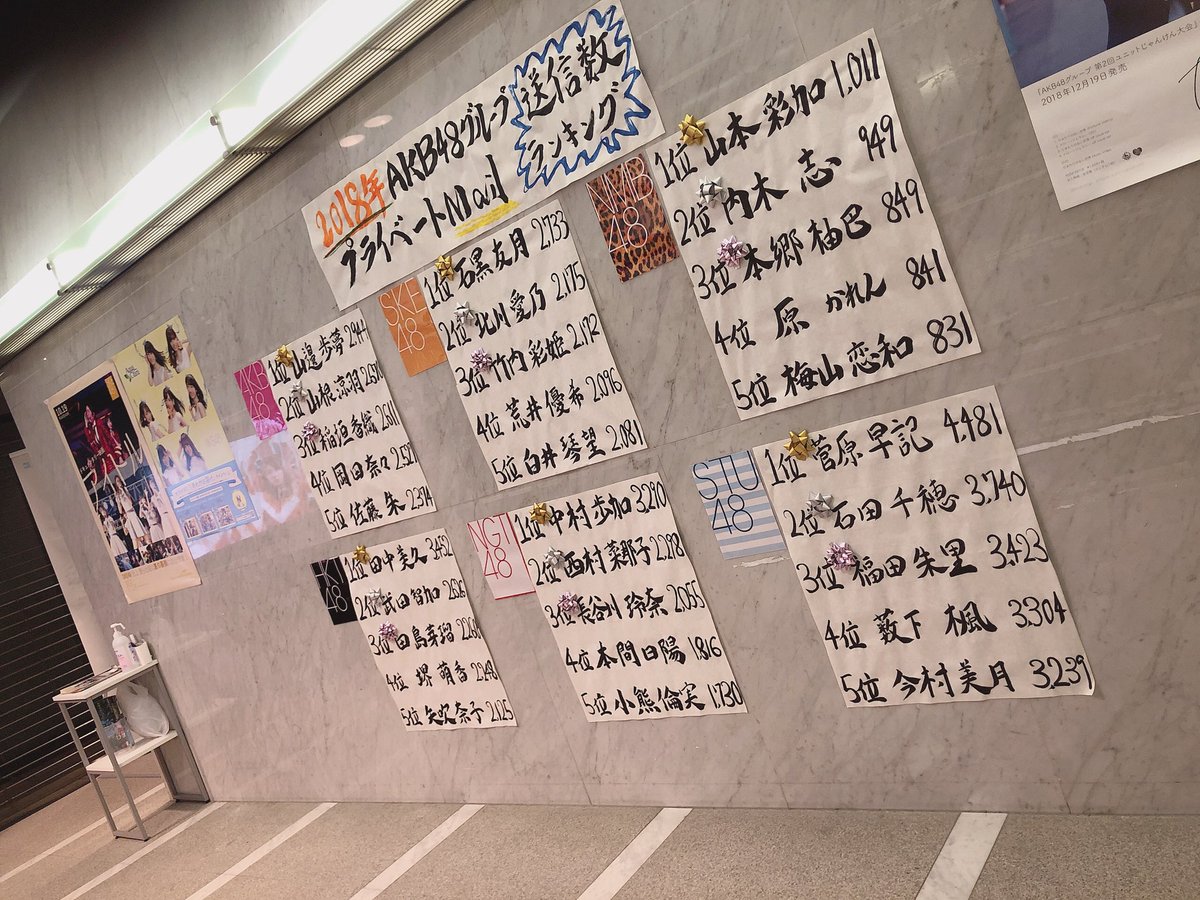 2018年 AKB48グループ
プライベートMail
送信数
ランキング
AKB
48
1位 山邊歩夢 2,944
2位 山根涼羽
3位 稲垣香織 2,611
4位 岡田奈々 2,527
5位 佐藤朱 2,394
SKE
48
1位 石黒友月 2,733
2位 北川愛乃 2,175
3位 竹内彩姫 2,172
4位 荒井優希 2,096
5位 白井琴望 2,081
NMB
48
1位 山本彩加 1,011
2位 内木志 949
3位 本郷柚巴 849
4位 原かれん 841
5位 梅山恋和 831
48
1位 田中美久 3,452
2位 武田智加
3位 田島芽瑠
4位 堺萌香 2,248
5位 矢吹奈子 2,125
NGT
48
1位 中村歩加 3,290
2位 西村菜那子 2,298
3位 長谷川玲奈 2,055
4位 本間日陽 1,816
5位 小熊倫実 1,730
STU
48
1位 菅原早記 4,481
2位 石田千穂 3,740
3位 福田朱里 3,423
4位 薮下楓 3,304
5位 今村美月 3,239
「AKB48グループ 第2回ユニットじゃんけん大会」
2018年12月19日発売
10.19